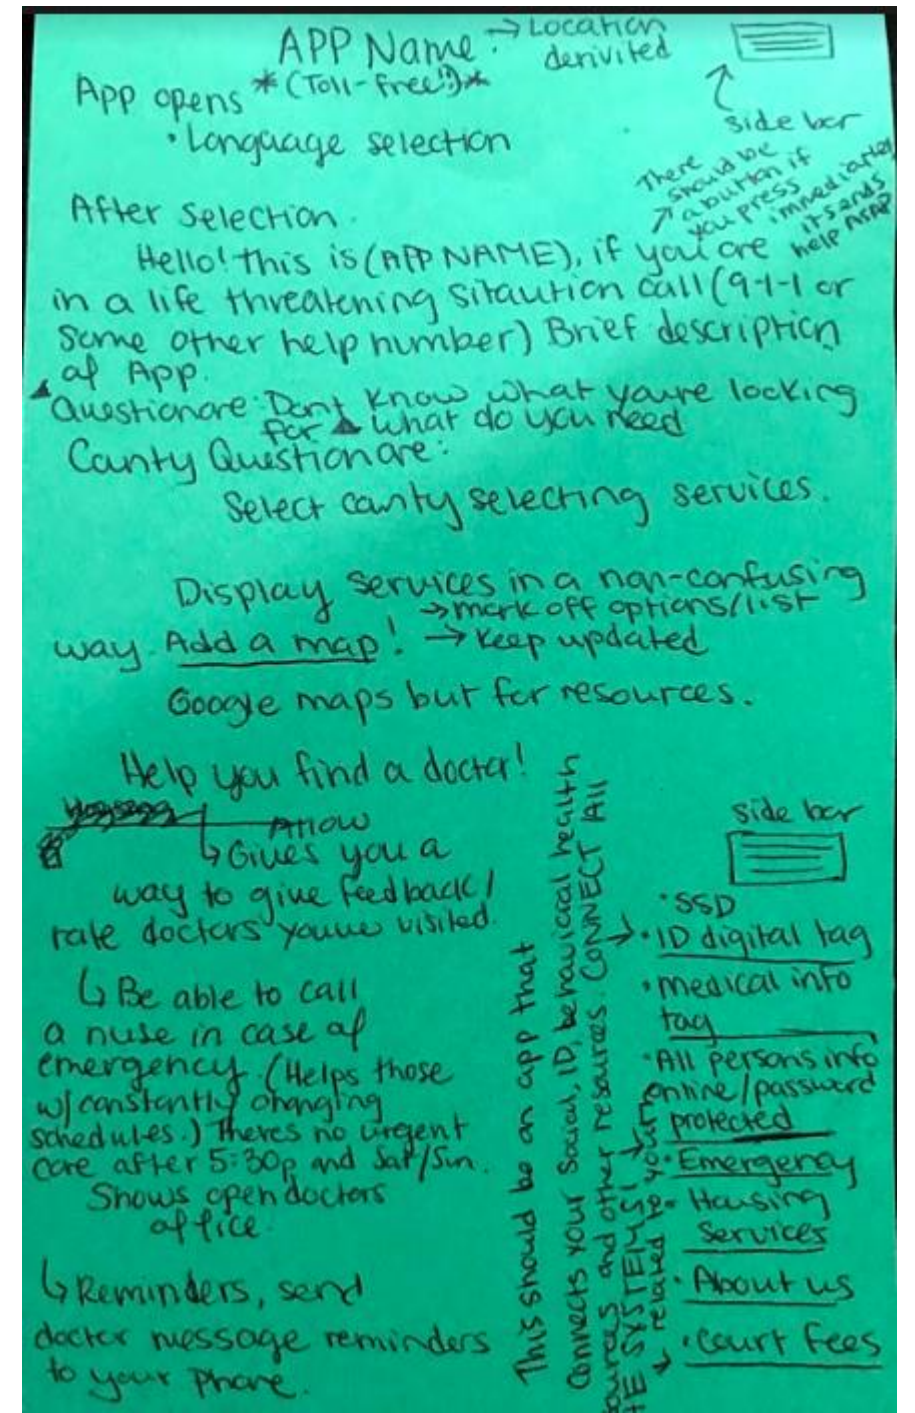 APP Name → Location
derivited
*(Toll-free!)*
App opens
• Language selection
side bar
There
should be
a button if
you press
immediatley
it sends
help ASAP
After Selection.
Hello! this is (APP NAME), if you are
in a life threatening sitaution call (9-1-1 or
some other help number) Brief description
of App.
Questionare: Dont know what youre looking
for ▲ what do you need
County Questionare:
Select county selecting services.
Display services in a non-confusing
→ mark off options/list
way. Add a map! → keep updated
Google maps but for resources.
Help you find a doctor!
Allow
↳ Gives you a
way to give feedback/
rate doctors youve visited.
↳ Be able to call
a nuse in case of
emergency. (Helps those
w/ constantly changing
schedules.) Theres no urgent
care after 5:30p and Sat/Sun.
Shows open doctors
office
↳ Reminders, send
doctor message reminders
to your phone.
This should be an app that
connects your Social, ID, behavioral health
and other resources. CONNECT All
SYSTEMS!
related to your
side bar
• SSD
• ID digital tag
• medical info
tag
• All persons info
online/password
protected
• Emergency
• Housing
Services
• About us
• Court fees